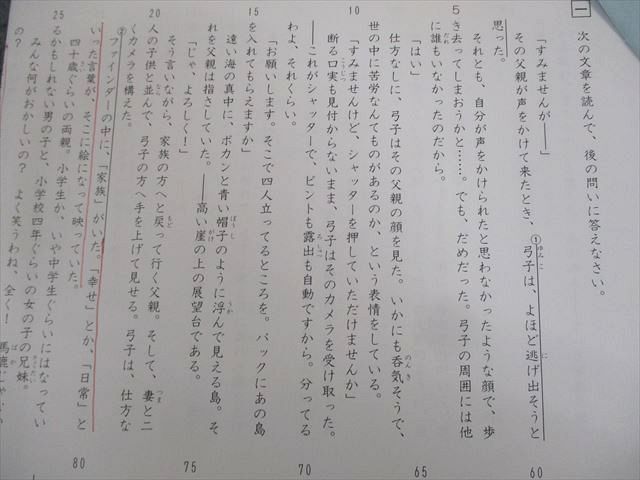 一 次の文章を読んで、後の問いに答えなさい。
「すみませんが――」
その父親が声をかけて来たとき、①弓子は、よほど逃げ出そうと
思った。
それとも、自分が声をかけられたと思わなかったような顔で、歩
5 き去ってしまおうかと……。でも、だめだった。弓子の周囲には他
に誰もいなかったのだから。
「はい」
仕方なしに、弓子はその父親の顔を見た。いかにも呑気そうで、
世の中に苦労なんてものがあるのか、という表情をしている。
10 「すみませんけど、シャッターを押していただけませんか」
断る口実も見付からないまま、弓子はそのカメラを受け取った。
――これがシャッターで、ピントも露出も自動ですから。分ってる
わよ、それくらい。
「お願いします。そこで四人立ってるところを。バックにあの島
15 を入れてもらえますか」
遠い海の真中に、ポカンと青い帽子のように浮んで見える島。そ
れを父親は指さしていた。――高い崖の上の展望台である。
「じゃ、よろしく！」
そう言いながら、家族の方へと戻って行く父親。そして、妻と二
20 人の子供と並んで、弓子の方へ手を上げて見せる。弓子は、仕方な
くカメラを構えた。
②ファインダーの中に、「家族」がいた。「幸せ」とか、「日常」と
いった言葉が、そこに絵になって映っていた。
四十歳ぐらいの両親。小学生か、いや中学生ぐらいにはなってい
25 るかもしれない男の子と、小学校四年ぐらいの女の子の兄妹。
みんな何がおかしいの？ よく笑うわね、全く！ 馬鹿
の？
60
65
70
75
80